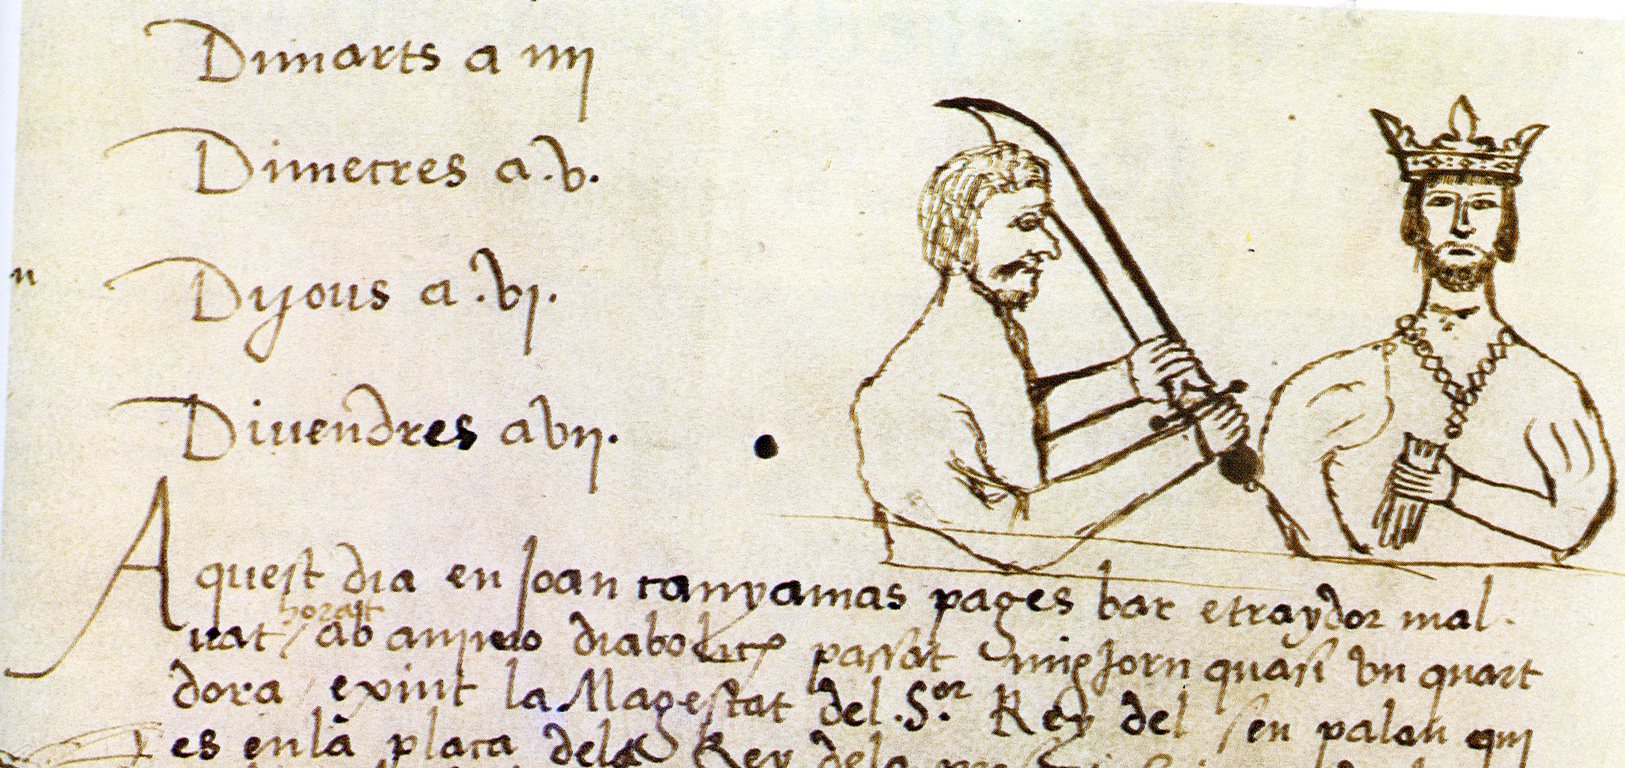 Dimarts a iiij
Dimecres a .v.
Dyous a .vj.
Divendres a vij.
Aquest dia en Joan canyamas pages bar e traydor mal
vat / ab animo diabolich passat mig jorn quasi vn quart
horat
dora / exint la Magestat del .S.or Rey del seu palau qui
es en la plaça dels Rey dela